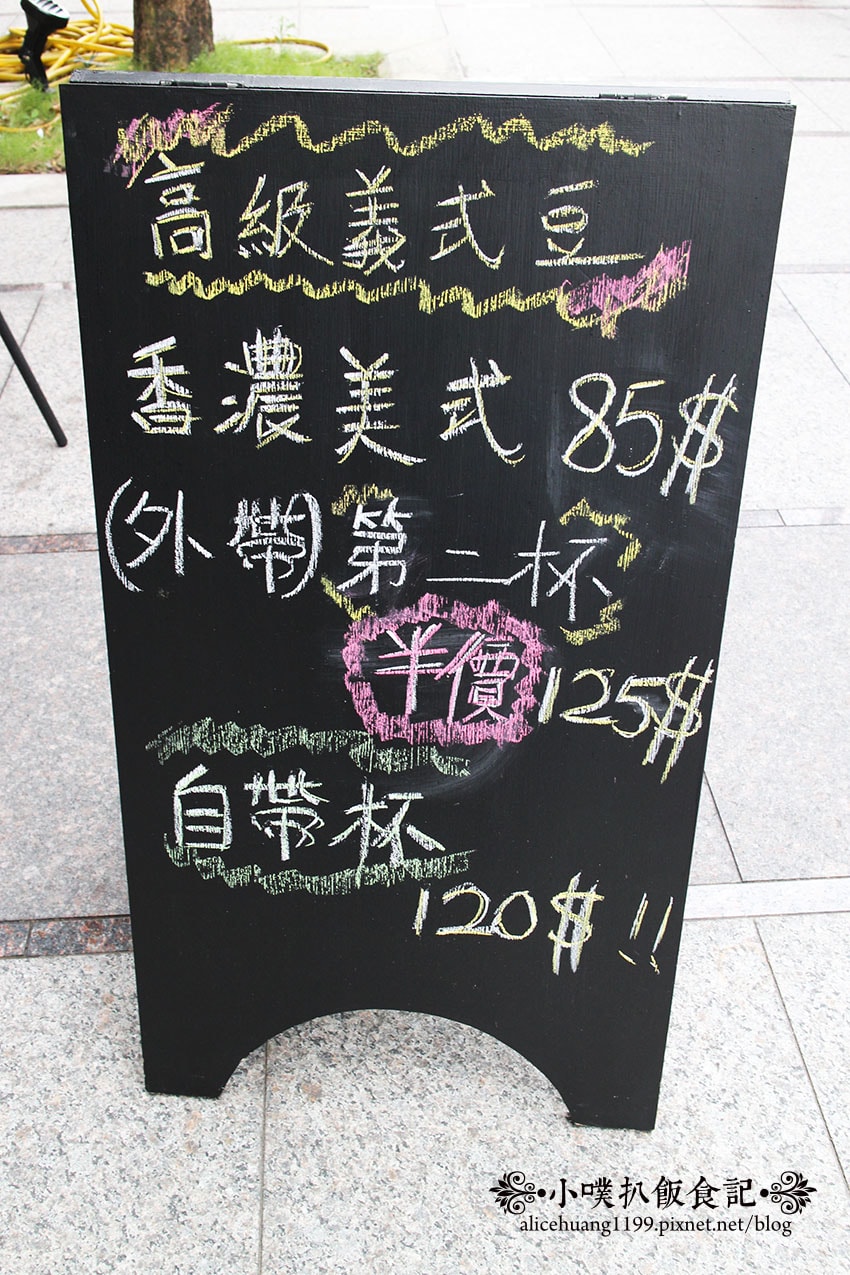 高級義式豆
香濃美式 85$
(外帶)第二杯
半價 125$
自帶杯
120$!!
小噗扒飯食記
alicehuang1199.pixnet.net/blog